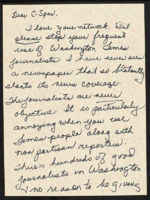 Dear C-Span,
I love your network. But
please stop your frequent
use of Washington Times
journalists. I have never seen
a newspaper that so blatantly
slants its news coverage.
The journalists are never
objective. It is particularly
annoying when you use
Times people along with
non partisan reporters.
There's hundreds of good
journalists in Washington
no reason to be giving